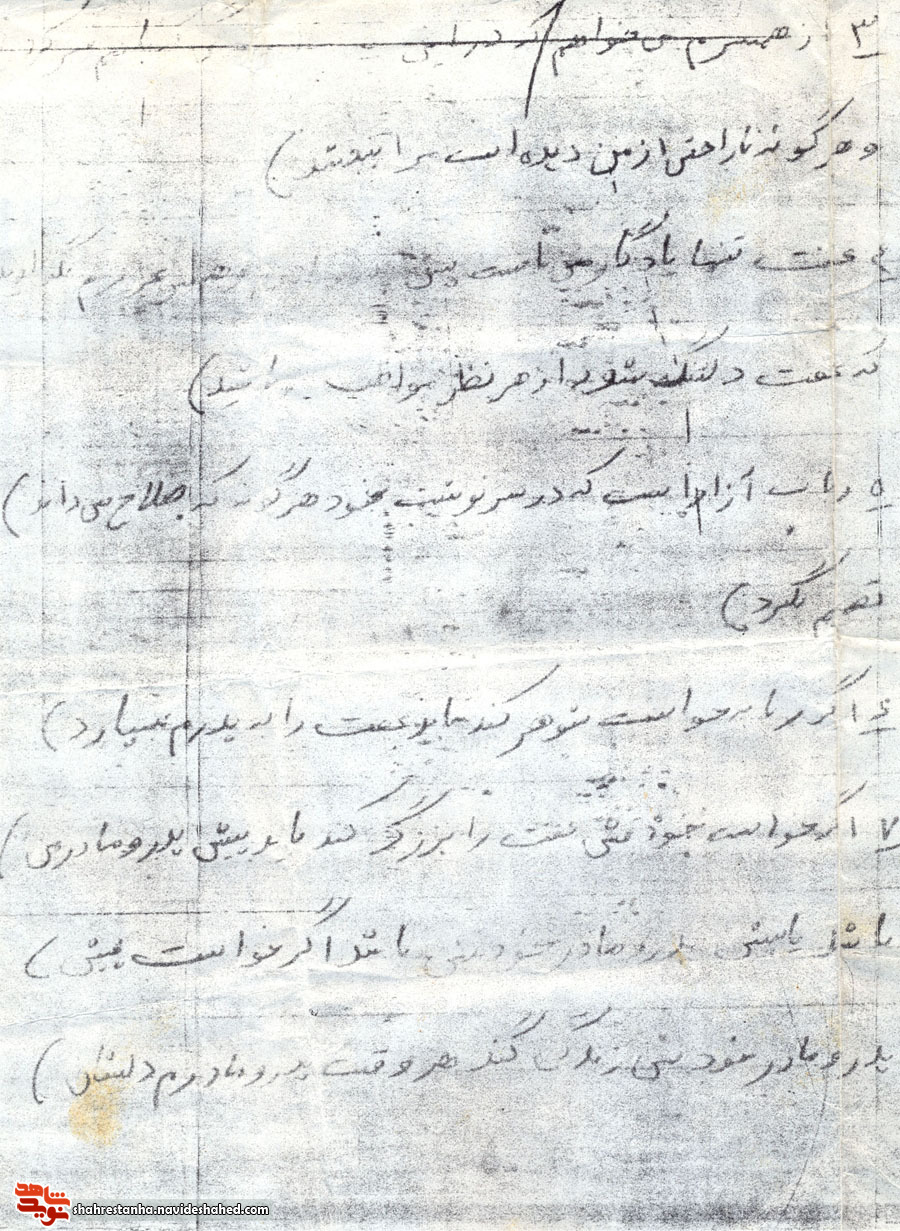 ۳ از همسرم می خواهم که در این
و هر گونه ناراحتی از من دیده است مرا ببخشد)
۴ عفت تنها یادگار من است پس
که عفت دلتنگ نشود از هر نظر مواظب باشید)
۵ رباب آزاد است که در سرنوشت خود هر گونه که صلاح می داند)
تصمیم بگیرد)
۶ اگر رباب خواست شوهر کند باید عفت را به پدرم بسپارد)
۷ اگر خواست خودش عفت را بزرگ کند باید پیش پدر و مادر من)
باشد یا پیش پدر و مادر خودش باشد اگر خواست پیش)
پدر و مادر خودش زندگی کند هر وقت پدر و مادرم دلشان)
شاهد نوید shahrestanha.navideshahed.com